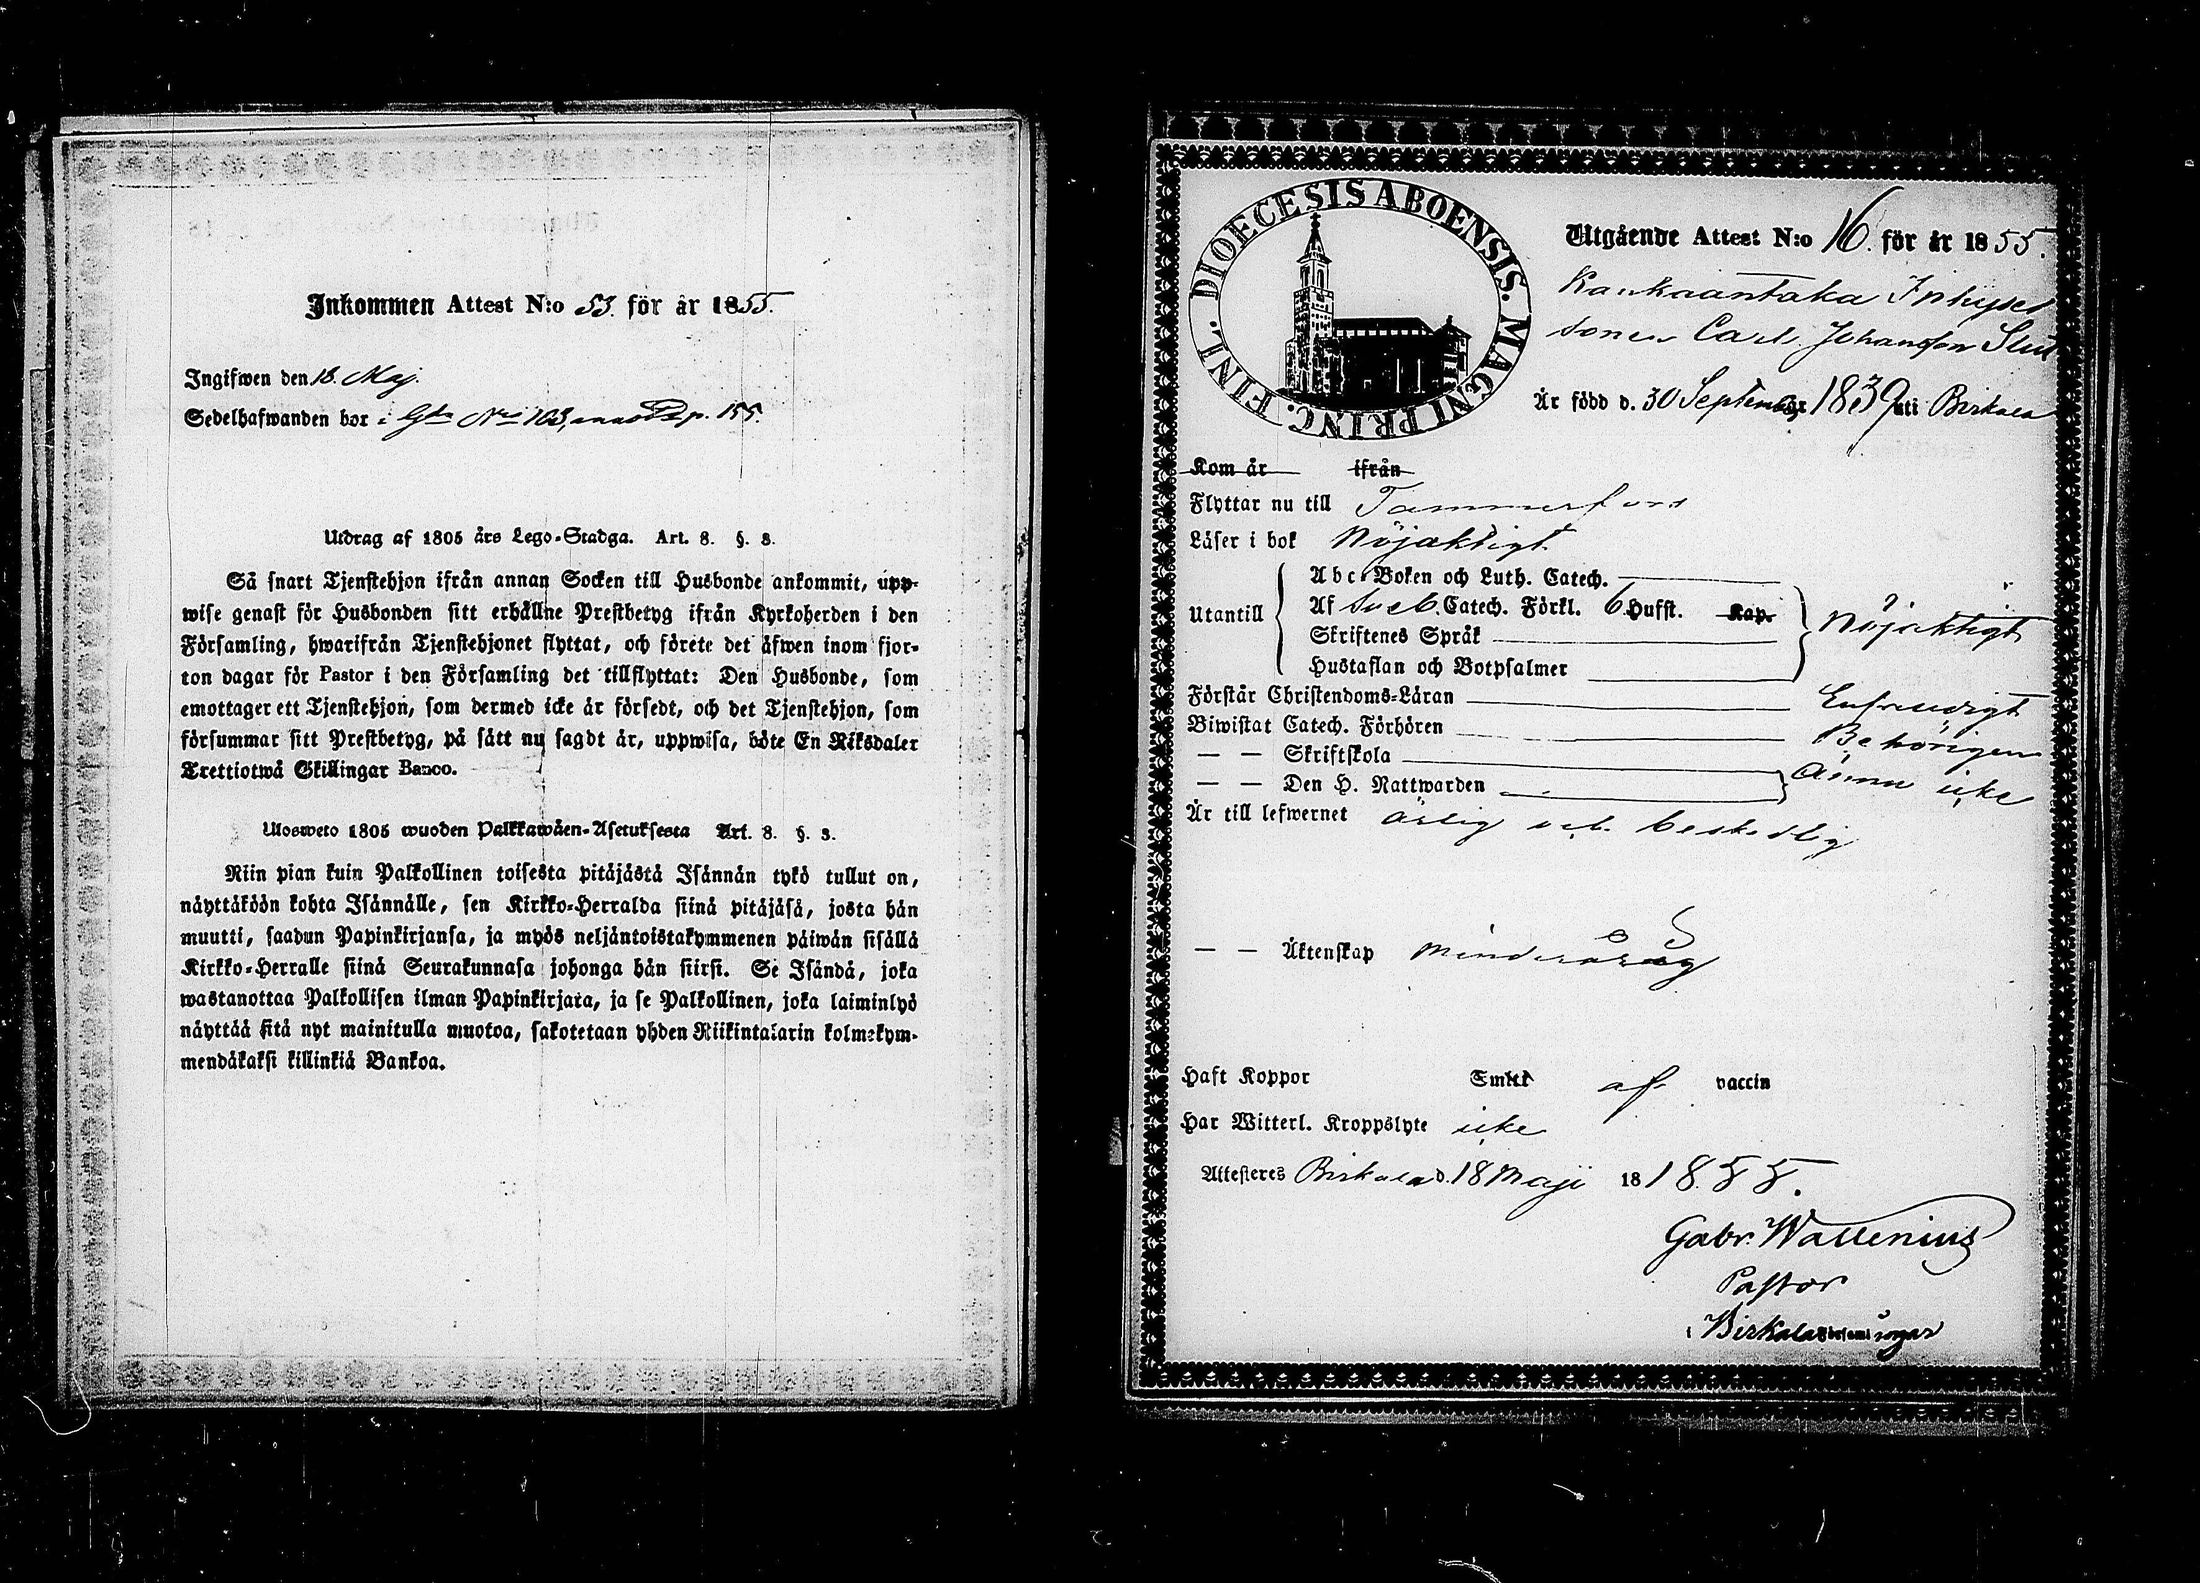 Inkommen Attest N:o 53. för år 1855.
Ingifwen den 18. Maj.
Sedelhafwanden bor i Gda No 103, p. 155.
Utdrag af 1805 års Lego-Stadga. Art. 8. §. 8.
Så snart Tjenstehjon ifrån annan Socken till Husbonde ankommit, upp-
wise genast för Husbonden sitt erhållne Prestbetyg ifrån Kyrkoherden i den
Församling, hwarifrån Tjenstehjonet flyttat, och förete det äfwen inom fjor-
ton dagar för Pastor i den Församling det tillflyttat: Den Husbonde, som
emottager ett Tjenstehjon, som dermed icke är försedt, och det Tjenstehjon, som
försummar sitt Prestbetyg, på sätt nu sagdt är, uppwisa, böte En Riksdaler
Trettiotwå Skillingar Banco.
Ulosweto 1805 wuoden Palkkawäen-Asetuksesta Art. 8. §. 8.
Niin pian kuin Palkollinen toisesta pitäjästä Isännän tykö tullut on,
näyttäköön kohta Isännälle, sen Kirkko-Herralda siinä pitäjäsä, josta hän
muutti, saadun Papinkirjansa, ja myös neljäntoistakymmenen päiwän sisällä
Kirkko-Herralle siinä Seurakunnasa johonga hän siirsi. Se Isändä, joka
wastanottaa Palkollisen ilman Papinkirjata, ja se Palkollinen, joka laiminlyö
näyttää sitä nyt mainitulla muotoa, sakotetaan yhden Riikintalarin kolmekym-
mendäkaksi killinkiä Bankoa.
DIOECESIS ABOENSIS. MAGNI PRINC. FINL.
Utgående Attest N:o 16. för år 1855.
Kankaantaka Inhyses
sonen Carl Johansson
Är född d. 30 September 1839 uti Birkala
Kom år ifrån
Flyttar nu till Tammerfors
Läser i bok Nöjaktigt
Utantill
Abc-Boken och Luth. Catech.
Af Sveb. Catech. Förkl. 6 Hufst. Kap.
Skriftenes Språk
Hustaflan och Botpsalmer
Nöjaktigt
Förstår Christendoms-Läran
Biwistat Catech. Förhören Behörigen
— — Skriftskola
— — Den H. Nattwarden ännu icke
Är till lefwernet ärlig och beskedlig
— — Äktenskap Minderårig
Haft Koppor Smitt af vaccin
Har Witterl. Kroppslyte icke
Attesteres Birkala d. 18 Maji 18 1855.
Gabr. Wallenius
Pastor
i Birkala församlingar